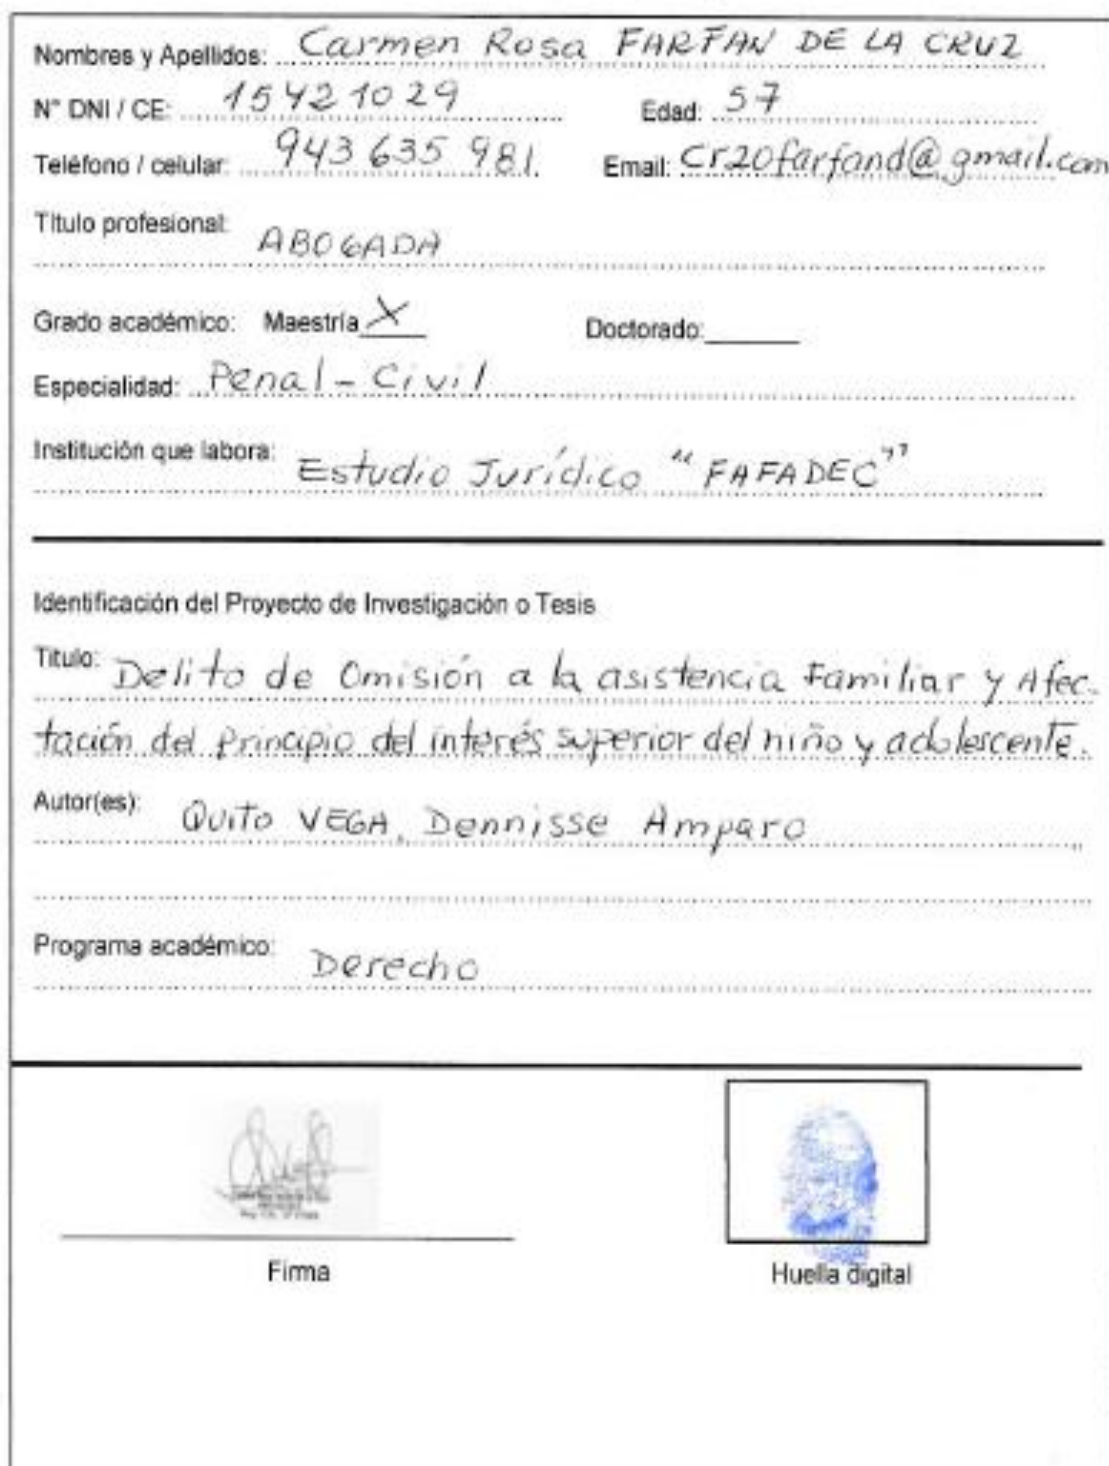 Nombres y Apellidos: Carmen Rosa FARFAN DE LA CRUZ
N° DNI / CE: 15421029 Edad: 57
Teléfono / celular: 943 635 981 Email: Cr20farfand@gmail.com
Título profesional: ABOGADA
Grado académico: Maestría X Doctorado:
Especialidad: Penal - Civil
Institución que labora: Estudio Jurídico "FAFADEC"
Identificación del Proyecto de Investigación o Tesis
Título: Delito de Omisión a la asistencia Familiar y Afec-
tación del principio del interés superior del niño y adolescente.
Autor(es): Quito VEGA, Dennisse Amparo
Programa académico: Derecho
Firma Huella digital